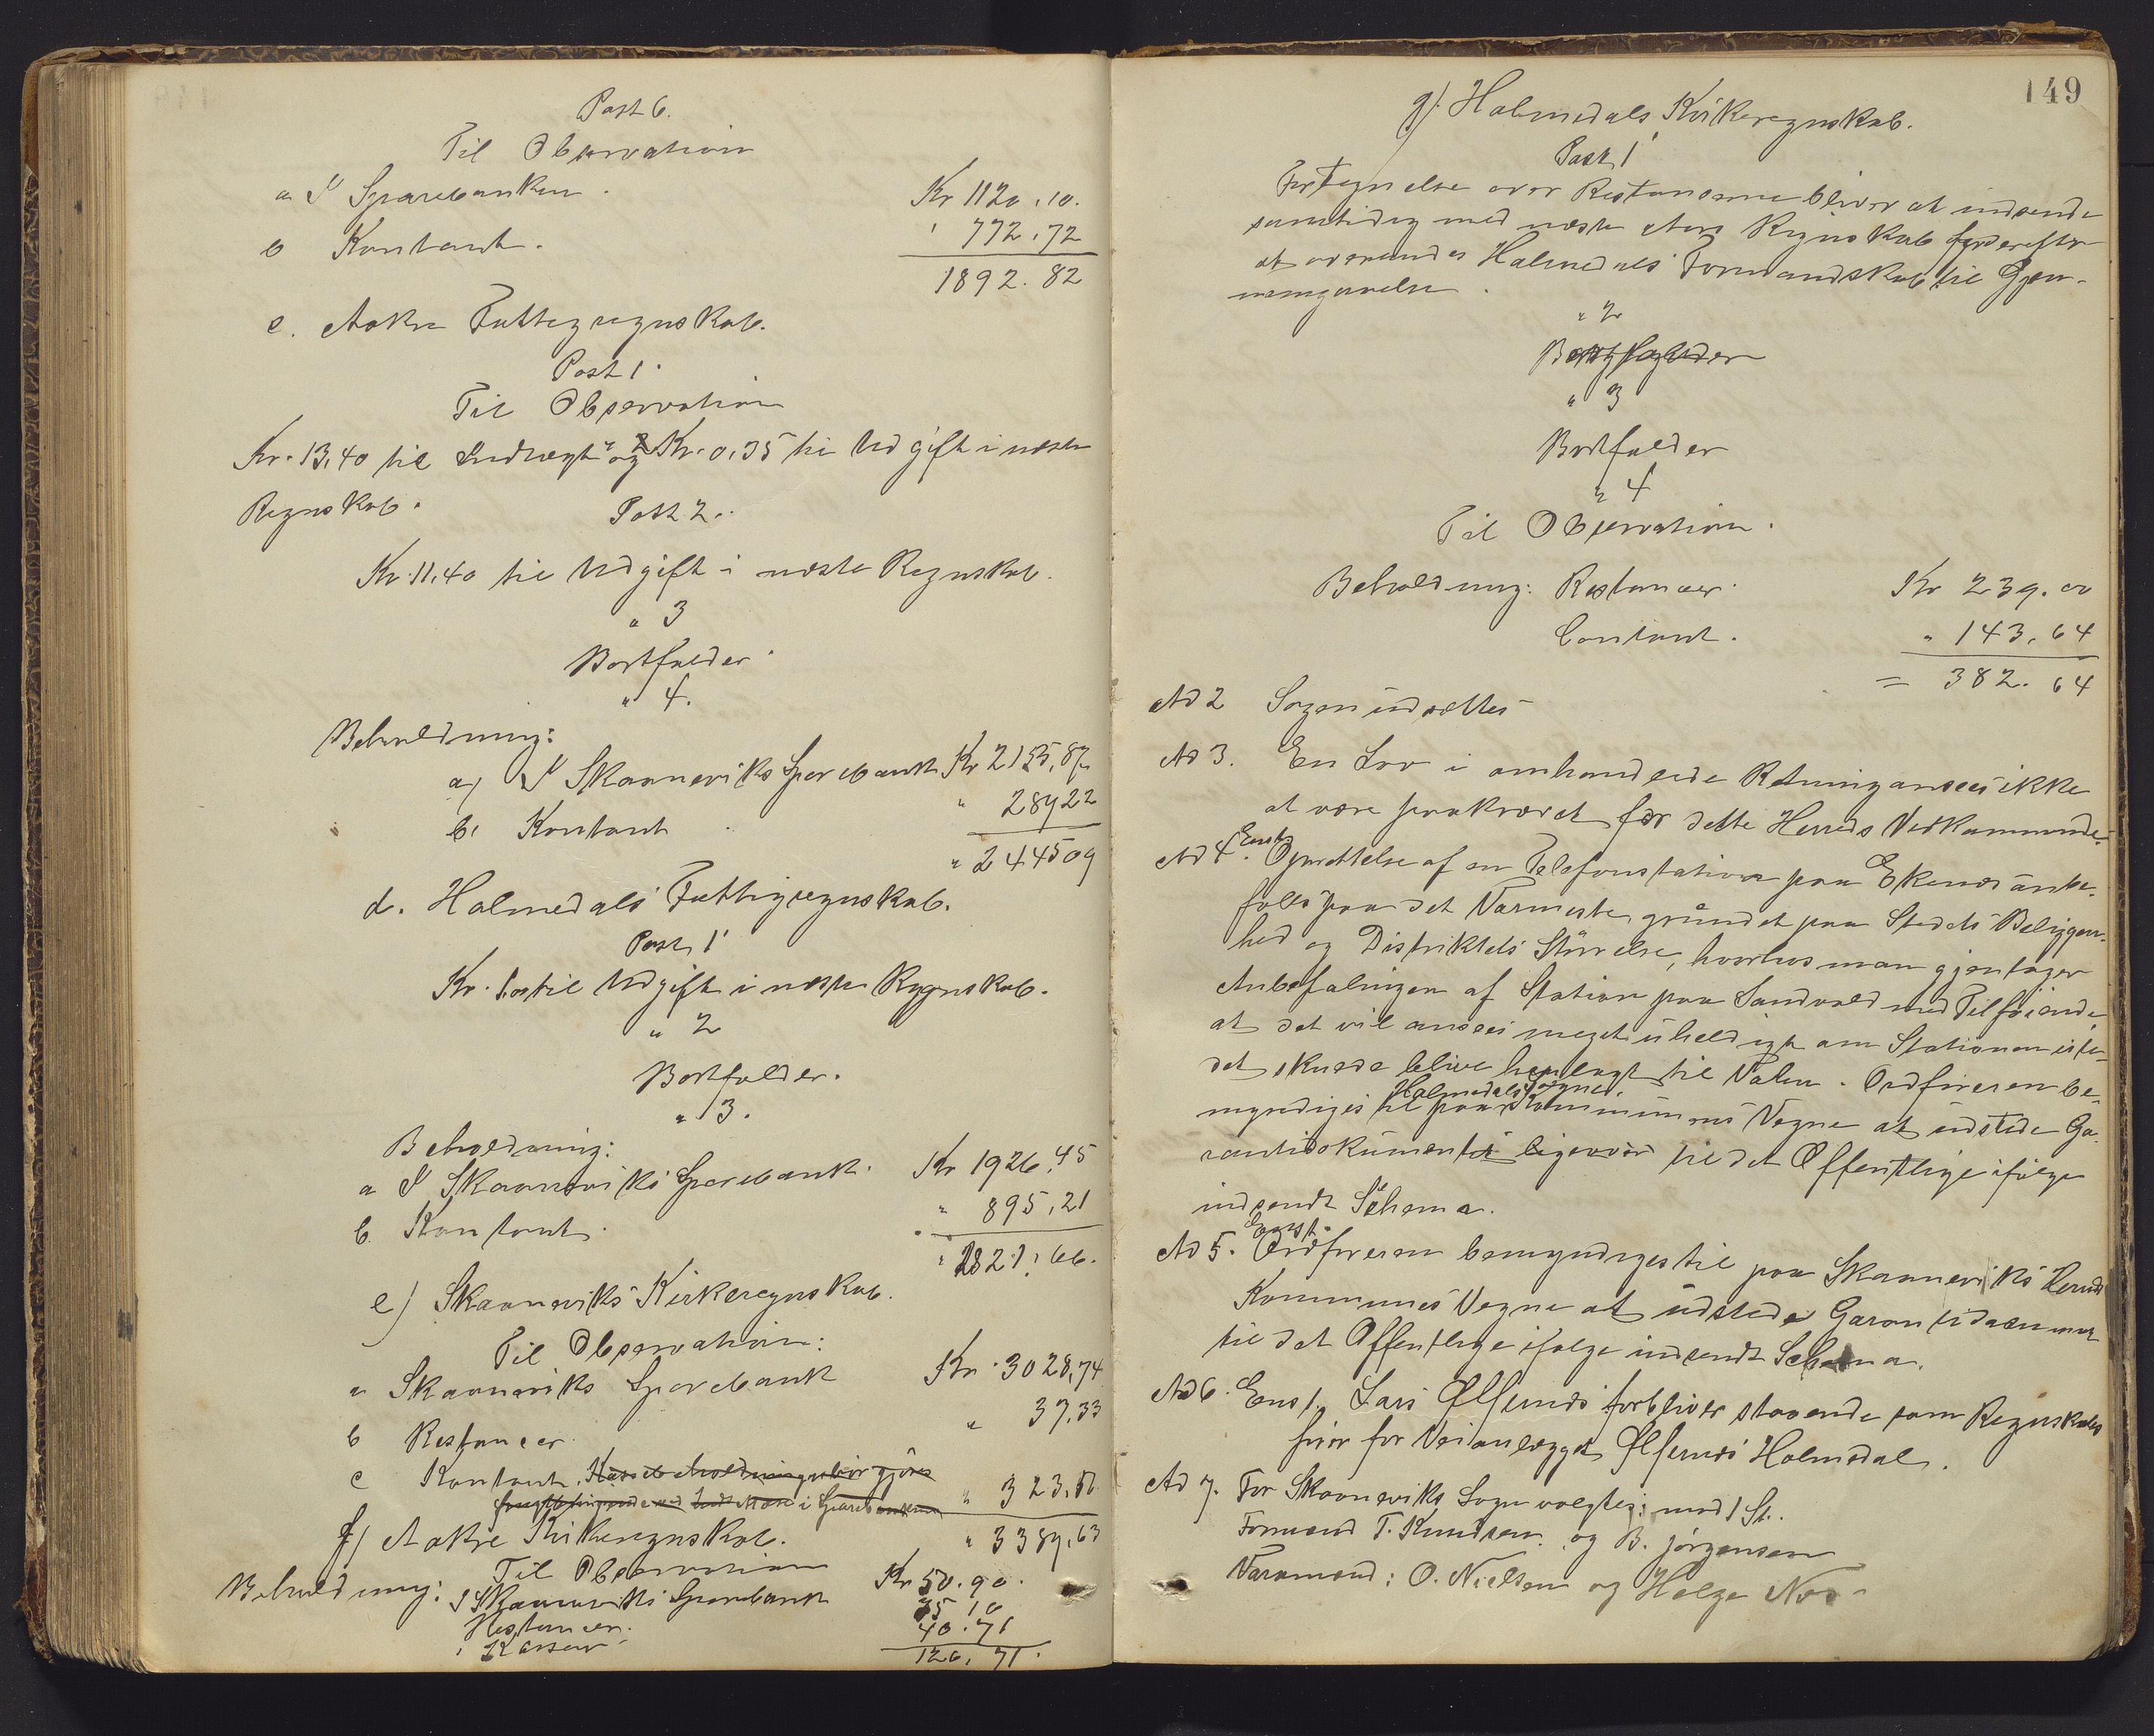 Post 6.
Til Observation
a I Sparebanken. Kr 1120,10.
b Kontant. " 772,72
1892.82
c. Aakre Fattigregnskab.
Post 1.
Til Observation
Kr. 13,40 til Indtægt og Kr. 0,35 til Udgift i næste
Regnskab.
Post 2.
Kr. 11,40 til Udgift i næste Regnskab.
" 3
Bortfalder
" 4.
Beholdning:
a) I Skaaneviks Sparebank Kr 2155,87
b. Kontant " 28922
" 244509
d. Holmedals Fattigregnskab.
Post 1
Kr. til Udgift i næste Regnskab.
" 2
Bortfalder.
" 3.
Beholdning:
a I Skaaneviks Sparebank. Kr 1926,45
b. Kontant. " 895,21
" 2821,66.
e) Skaaneviks Kirkeregnskab.
Til Observation:
a Skaaneviks Sparebank Kr. 3028,74
b Restancer " 37,33
c Kontant. Kassebeholdningen bør gjøres " 323,
frugtbringende ved Indsættelse i Sparebanken
f) Aakre Kirkeregnskab. " 3389,63
Til Observation
Beholdning: I Skaaneviks Sparebank Kr 50.90.
Restancer. 35 10
" Kassen 40.71
126,71.
149
g). Holmedals Kirkeregnskab.
Post 1
Fortegnelse over Restancerne bliver at indsende
samtidig med næste Aars Regnskab for derefter
at oversendes Holmedals Formandskab til Gjen-
nemgaaelse.
" 2
Bortfalder
" 3
Bortfalder
" 4
Til Observation.
Beholdning: Restancer. Kr 239.00
Contant. " 143,64
= 382.64
Ad 2 Sagen udsættes
Ad 3. En Lov i omhandlede Retning ansees ikke
at være paakrævet for dette Herreds Vedkommende.
Ad 4. Enst. Oprettelse af en Telefonstation paa Ekenæs anbe-
fales paa det Varmeste grundet paa Stedets Beliggen-
hed og Distriktets Størrelse, hvorhos man gjentager
Anbefalingen af Station paa Sandvold med Tilføiende
at det vil ansees meget uheldigt om Stationen iste-
det skulde blive henlagt til Valen. Ordføreren be-
myndiges til paa Holmedals Sogns Kommunes Vegne at udstede Ga-
rantidokument ligeover til det Offentlige ifølge
indsendt Schema.
Ad 5. Enst. Ordføreren bemyndiges til paa Skaaneviks Herreds
Kommunes Vegne at udstede Garantidocument
til det Offentlige ifølge indsendt Schema.
Ad 6. Enst. Lars Ølfernæs forbliver staaende som Regnskabs
fører for Veianlægget Ølfernæs Holmedal.
Ad 7. For Skaaneviks Sogn valgtes: mod 1 St.
Formand T. Knudsen og B. Jørgensen
Varamænd: O. Nielsen og Helge Nes-